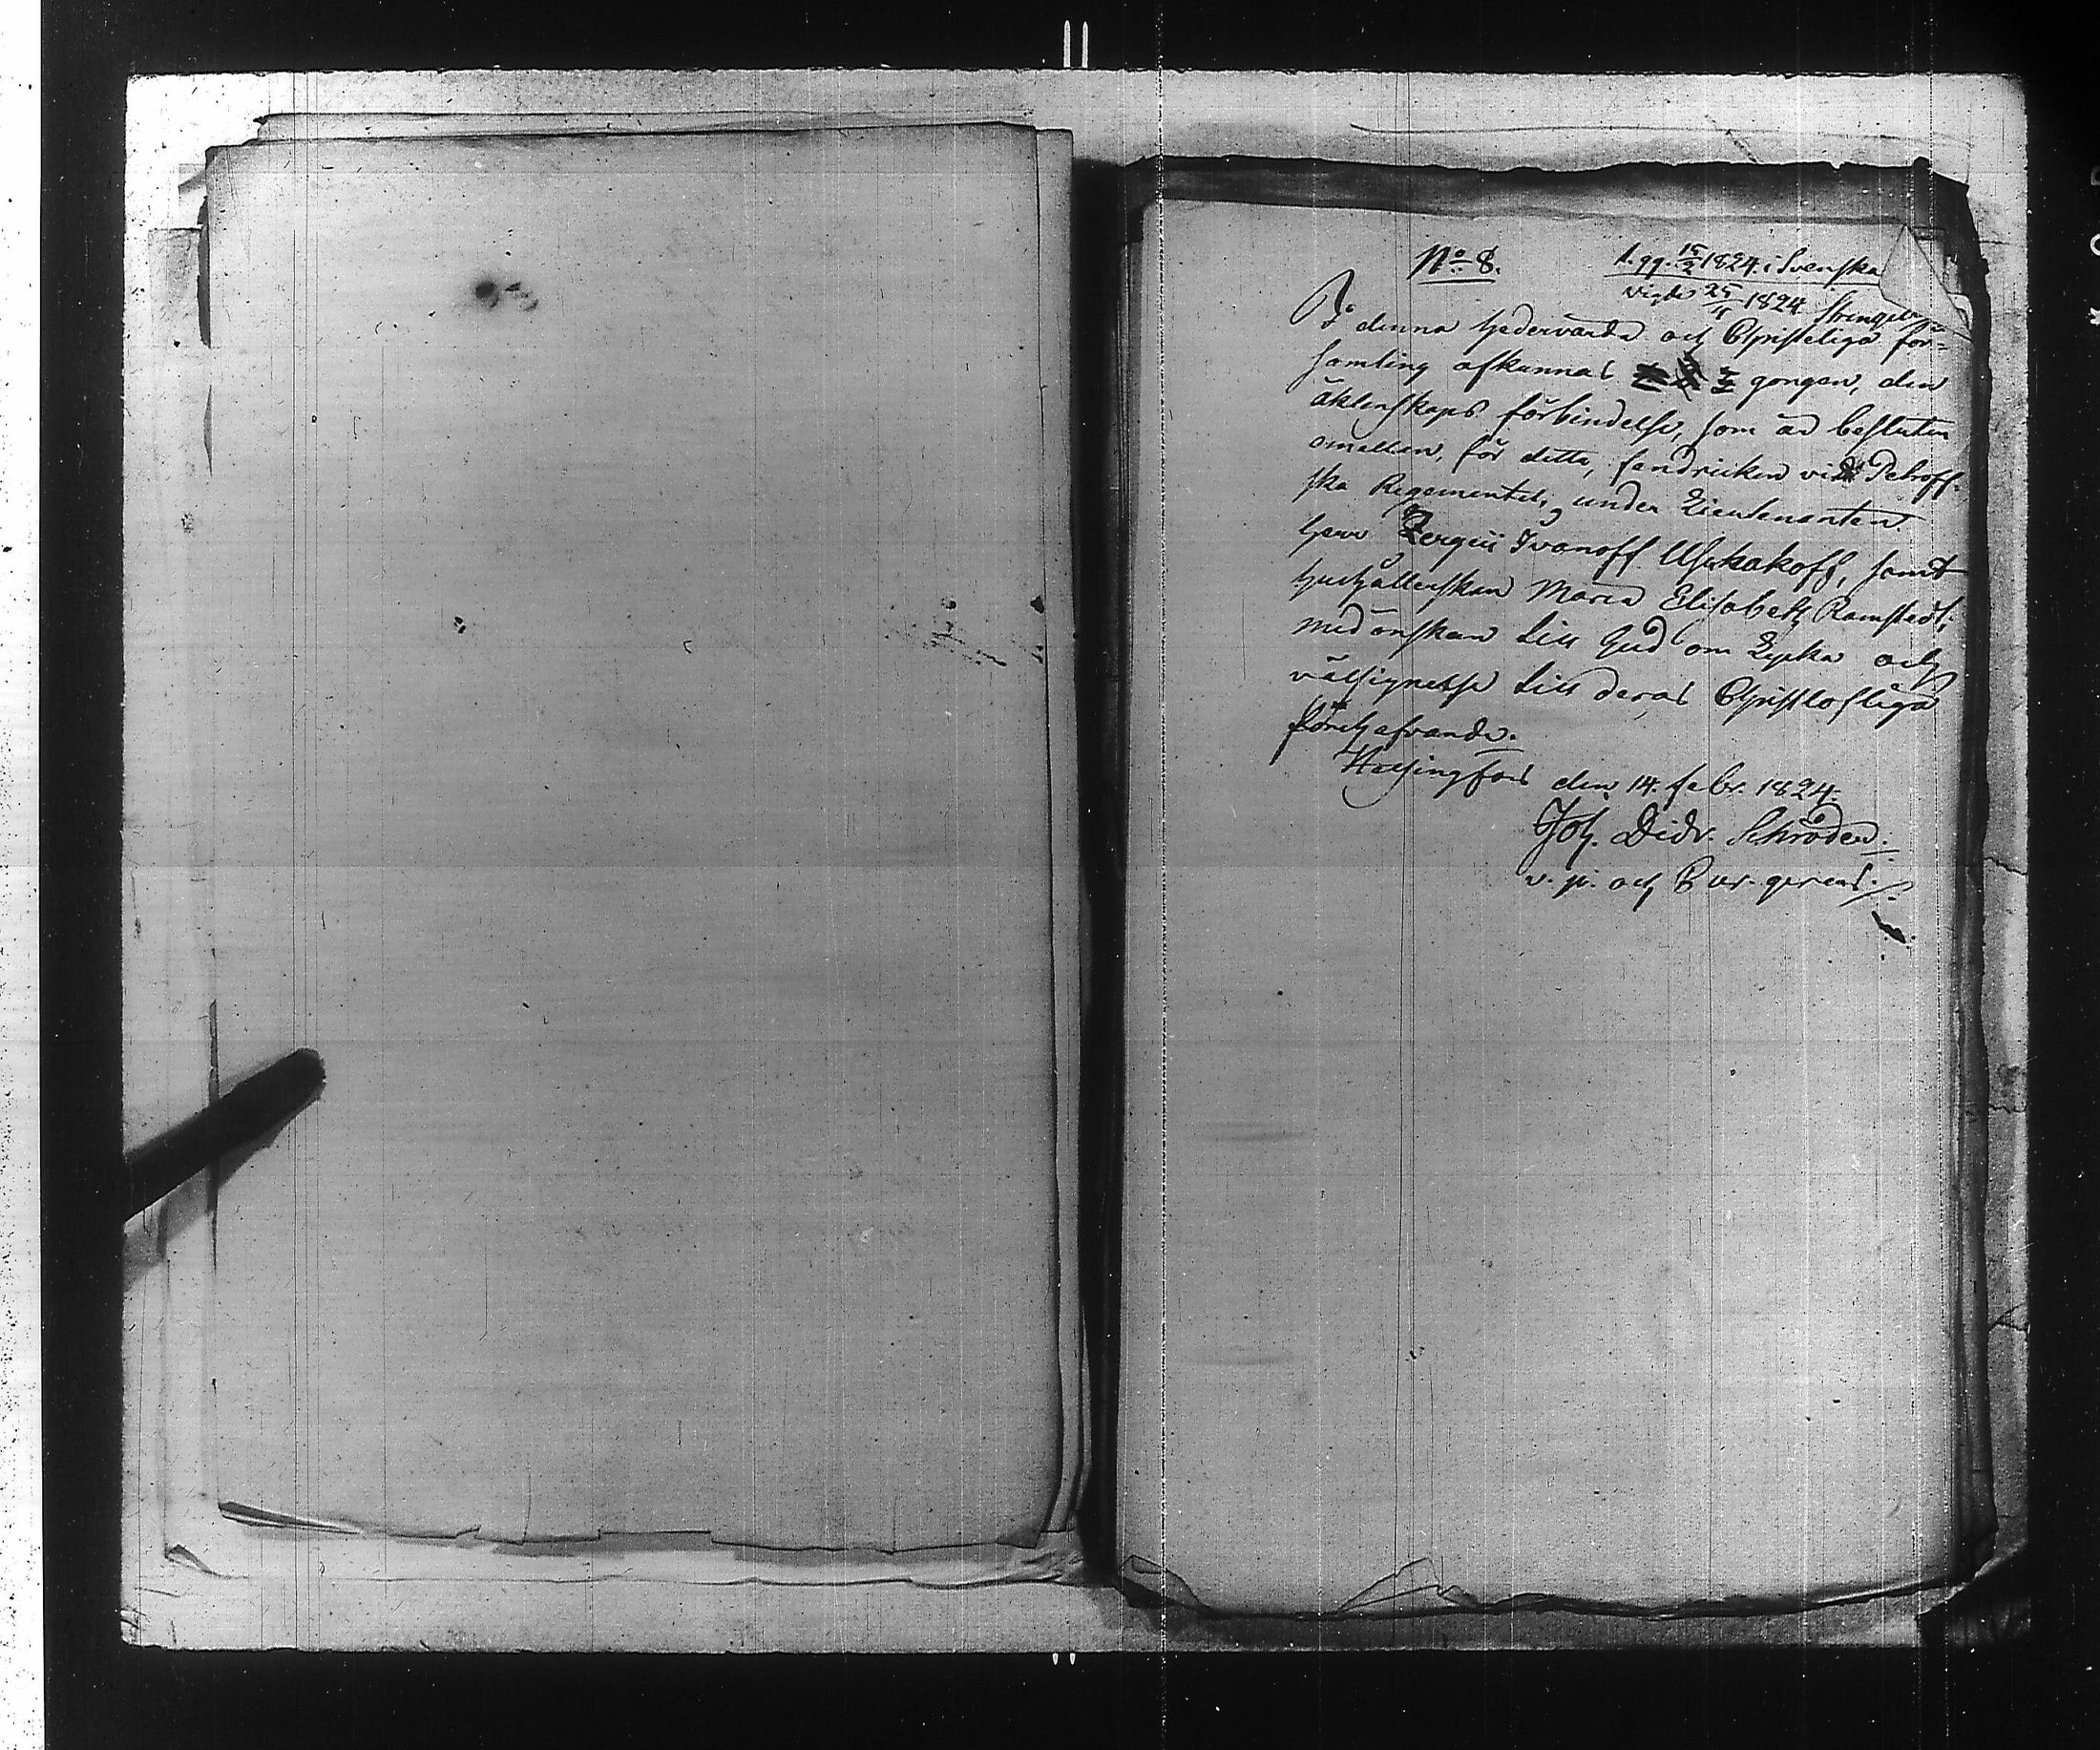 No 8.
1. gg. 15/2 1824. i Svenska
Vigde 25/4 1824
I denna hedervärda och Christeliga för=
samling afkunnas gongen, den
äktenskaps förbindelse, som är besluten
emellan, för detta, fendricken vid Petroff-
ska Regementet, under Lieutenanten
herr Zergeii Ivanoff Uschakoff, samt
hushållerskan Maria Elisabeth Ramstedt;
med önskan till Gud om Lycka och
välsignelse till deras Christlofliga
förehafvande.
Helsingfors den 14. febr. 1824.
Joh. Didr. Schröder.
v. p. och